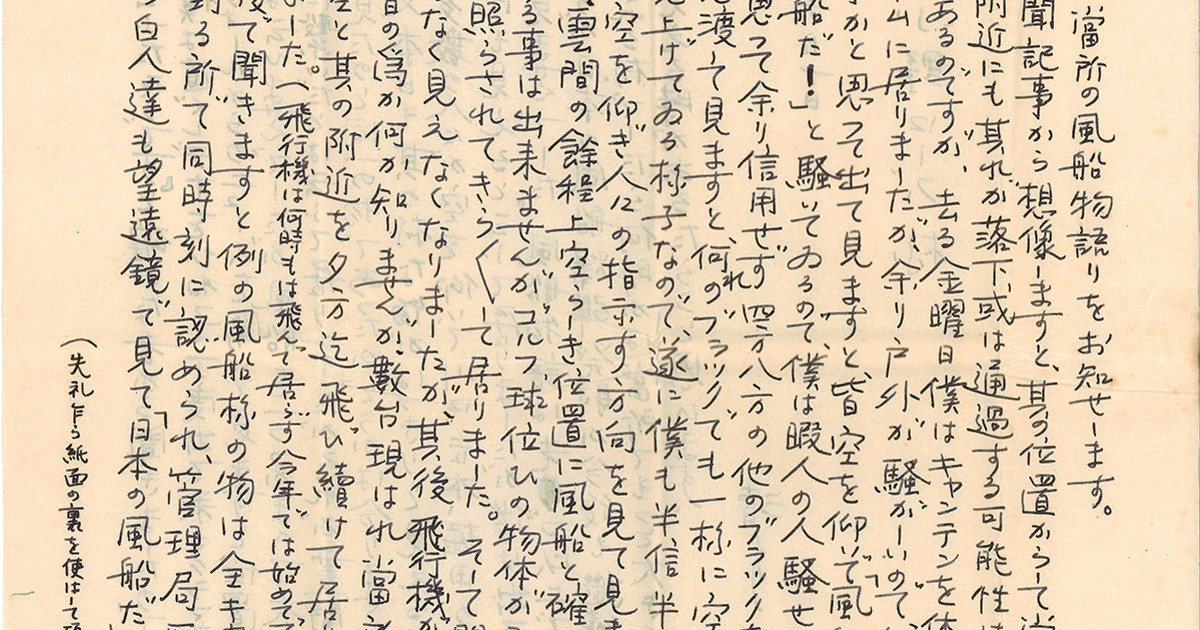 當所の風船物語りをお知せします。
聞記事から想像しますと、其の位置からして當
附近にも其れが落下或は通過する可能性は
あるのですが、去る金曜日僕はキャンテンを休
ムに居りましたが、余り戸外が騒がしいので、
事かと思って出て見ますと、皆空を仰いで「風
船だ!」と騒いでゐるので、僕は暇人の人騒せ
思って余り信用せず四方八方の他のブラックを
見渡して見ますと、何れのブラックでも一様に空
見上げてゐる様子なので、遂に僕も半信半
空を仰ぎ人々の指示す方向を見て見ま
雲間の餘程上空らしき位置に風船と確
る事は出来ませんがゴルフ球位ひの物体が
照らされてきら〱して居りました。そして間
なく見えなくなりましたが、其後飛行機が
昔の為か何か知りませんが、數台現はれ當
空と其の附近を夕方迄飛び續けて居
ました。(飛行機は何時もは飛んで居らず今年では始めて
後で聞きますと例の風船様の物は全キ
到る所で同時刻に認められ、管理局
の白人達も望遠鏡で見て「日本の風船だ
(失礼乍ら紙面の裏を使はして頂